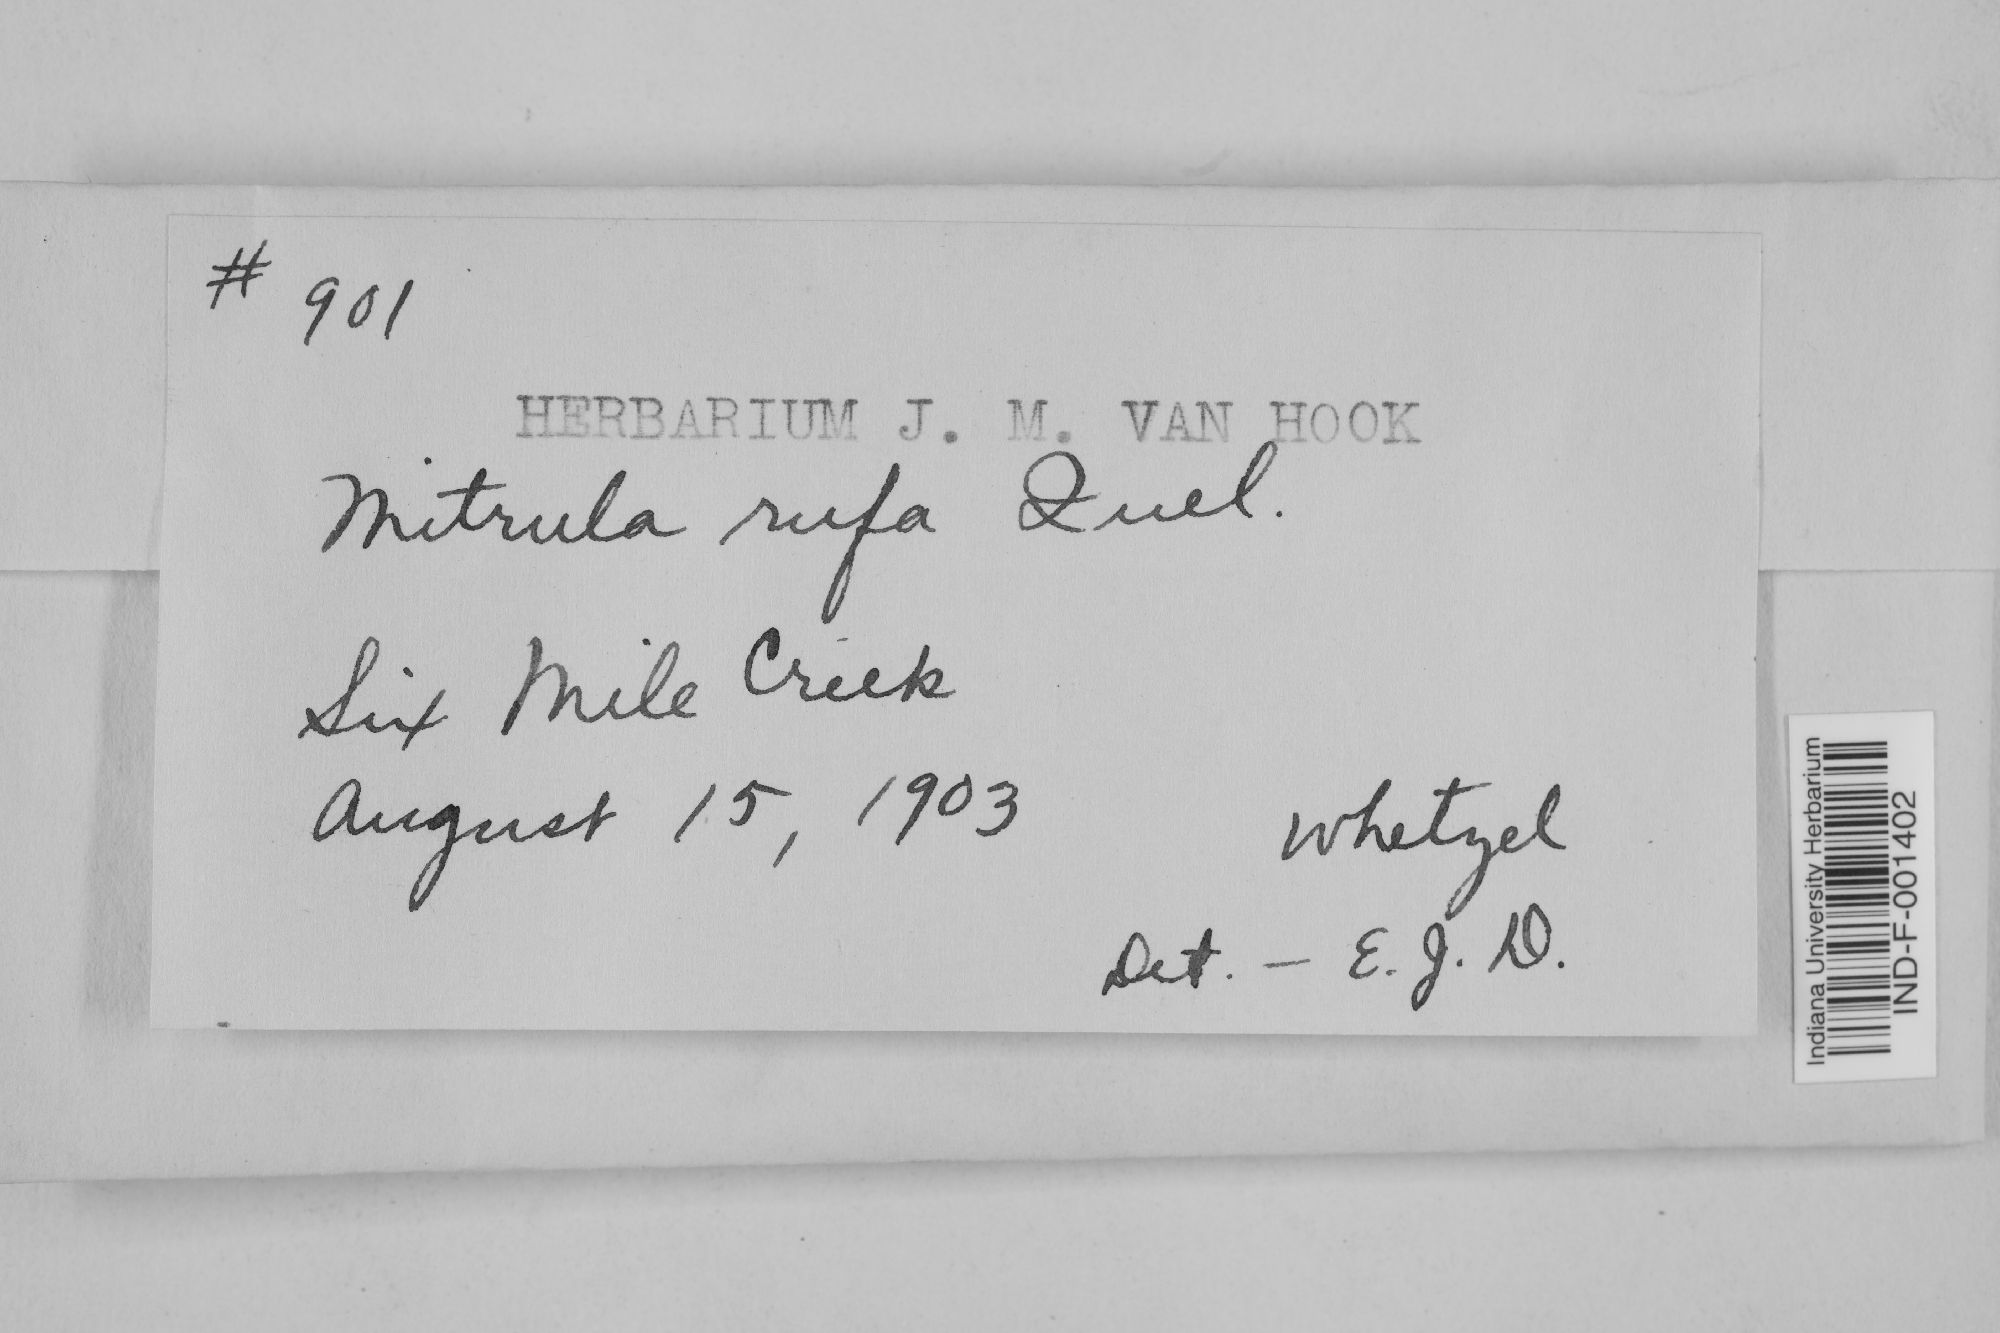 # 901
HERBARIUM J. M. VAN HOOK
Mitrula rufa Quel.
Six Mile Creek
August 15, 1903
Whetzel
Det. — E. J. D.
Indiana University Herbarium
IND-F-001402